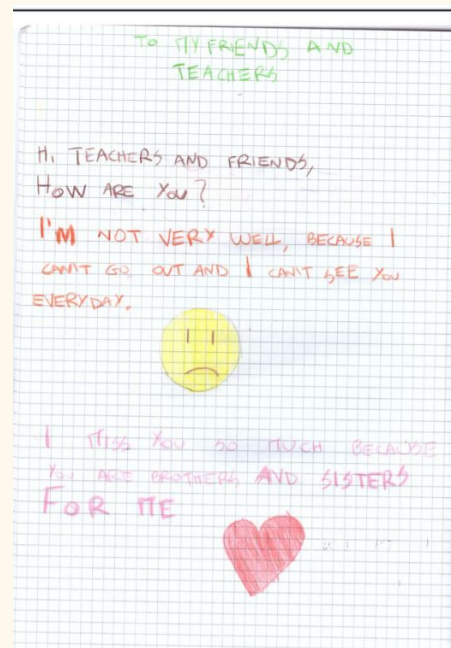 TO MY FRIENDS AND
TEACHERS
Hi TEACHERS AND FRIENDS,
HOW ARE YOU?
I'M NOT VERY WELL, BECAUSE I
CAN'T GO OUT AND I CAN'T SEE YOU
EVERYDAY.
I MISS YOU SO MUCH BECAUSE
YOU ARE BROTHERS AND SISTERS
FOR ME